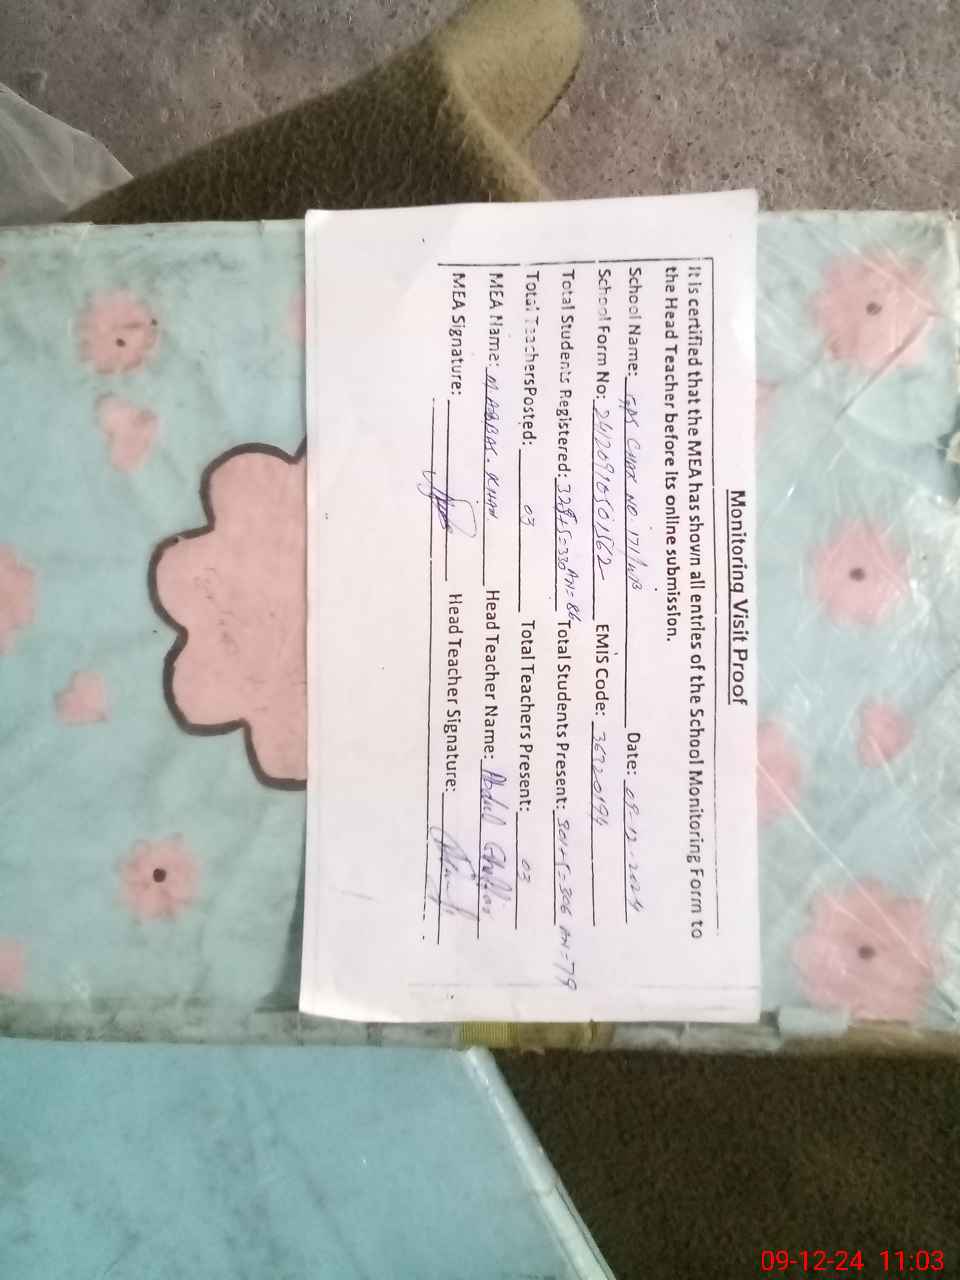 Monitoring Visit Proof
It is certified that the MEA has shown all entries of the School Monitoring Form to
the Head Teacher before its online submission.
School Name: GPS CHAK NO. 171/WB Date: 09-12-2024
School Form No: EMIS Code: 36720194
Total Students Registered: Total Students Present: 301+5=306 AN=79
Total TeachersPosted: 03 Total Teachers Present: 03
MEA Name: M. ABBAS. KHAN Head Teacher Name: Abdul Ghaffar
MEA Signature: Head Teacher Signature:
09-12-24 11:03